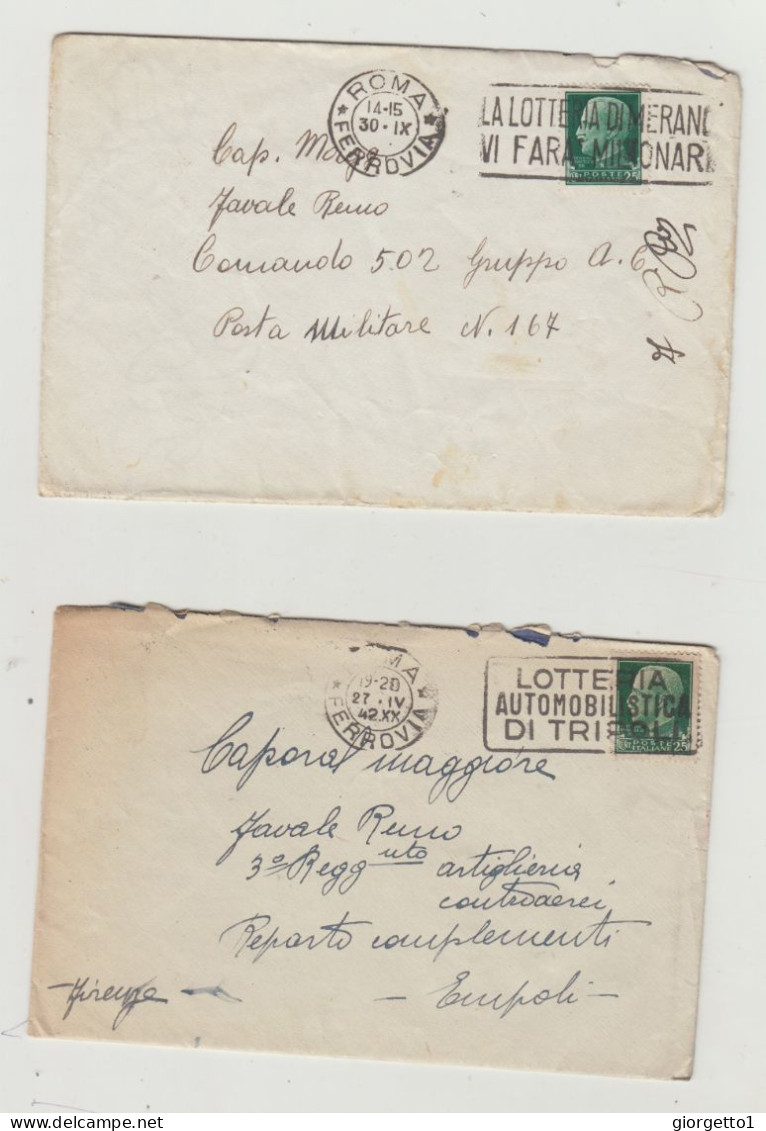 ROMA
14-15
30·IX
FERROVIA
LA LOTTERIA DI MERANO
VI FARÀ MILIONARI
POSTE 25
Cap. Magg.
Favale Remo
Comando 502 Gruppo A. C.
Posta Militare N. 167
ROMA
19-20
27·IV
42.XX
FERROVIA
LOTTERIA
AUTOMOBILISTICA
DI TRIPOLI
POSTE
ITALIANE 25
Caporal maggiore
Favale Remo
3º Reggnto artiglieria
contraerei
Reparto complementi
— Empoli —
— Firenze —
delcampe.net
giorgetto1